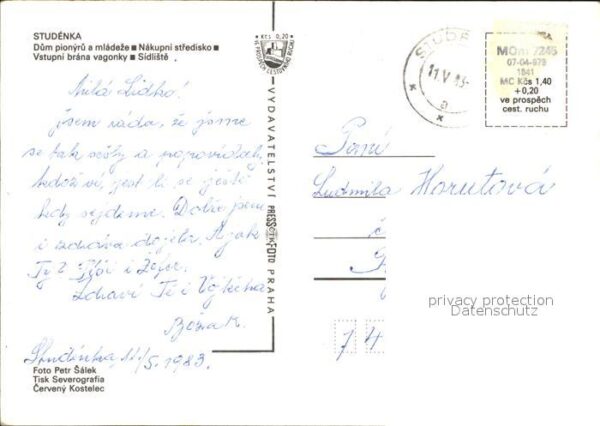 STUDÉNKA
Dům pionýrů a mládeže ■ Nákupní středisko ■
Vstupní brána vagonky ■ Sídliště
Milá Lidko!
jsem ráda, že jsme
se tak sešly a popovídaly,
kdož ví, jest li se ještě
kdy sejdeme. Dobře jsem
i zdráva dojela. A jak
Ty?
i
Zdraví Tě i Vojtěcha
Boža K.
Studénka 11./5. 1983.
Foto Petr Šálek
Tisk Severografia
Červený Kostelec
Kčs 0,20
VE PROSPĚCH CESTOVNÍHO RUCHU
VYDAVATELSTVÍ PRESSFOTO PRAHA
STUDÉ
11.V.83-
a
MOm 7245
07-04-978
1841
MC Kčs 1,40
+0,20
ve prospěch
cest. ruchu
Paní
Ludmila Horutová
74
privacy protection
Datenschutz